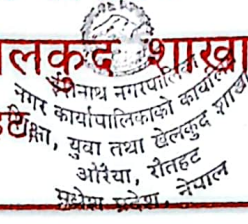 लकुद शाखा
ईशनाथ नगरपालिका
नगर कार्यपालिकाको कार्यालय
शिक्षा, युवा तथा खेलकुद शाखा
औरैया, रौतहट
मधेश प्रदेश, नेपाल